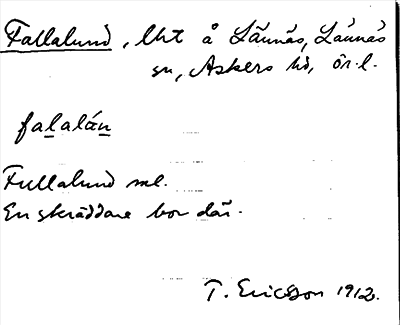 Fallalund, lht å Lännäs, Lännäs
sn, Askers hd, ör. l.
falalán
Fullalund ml.
En skräddare bor där.
T. Ericsson 1912.